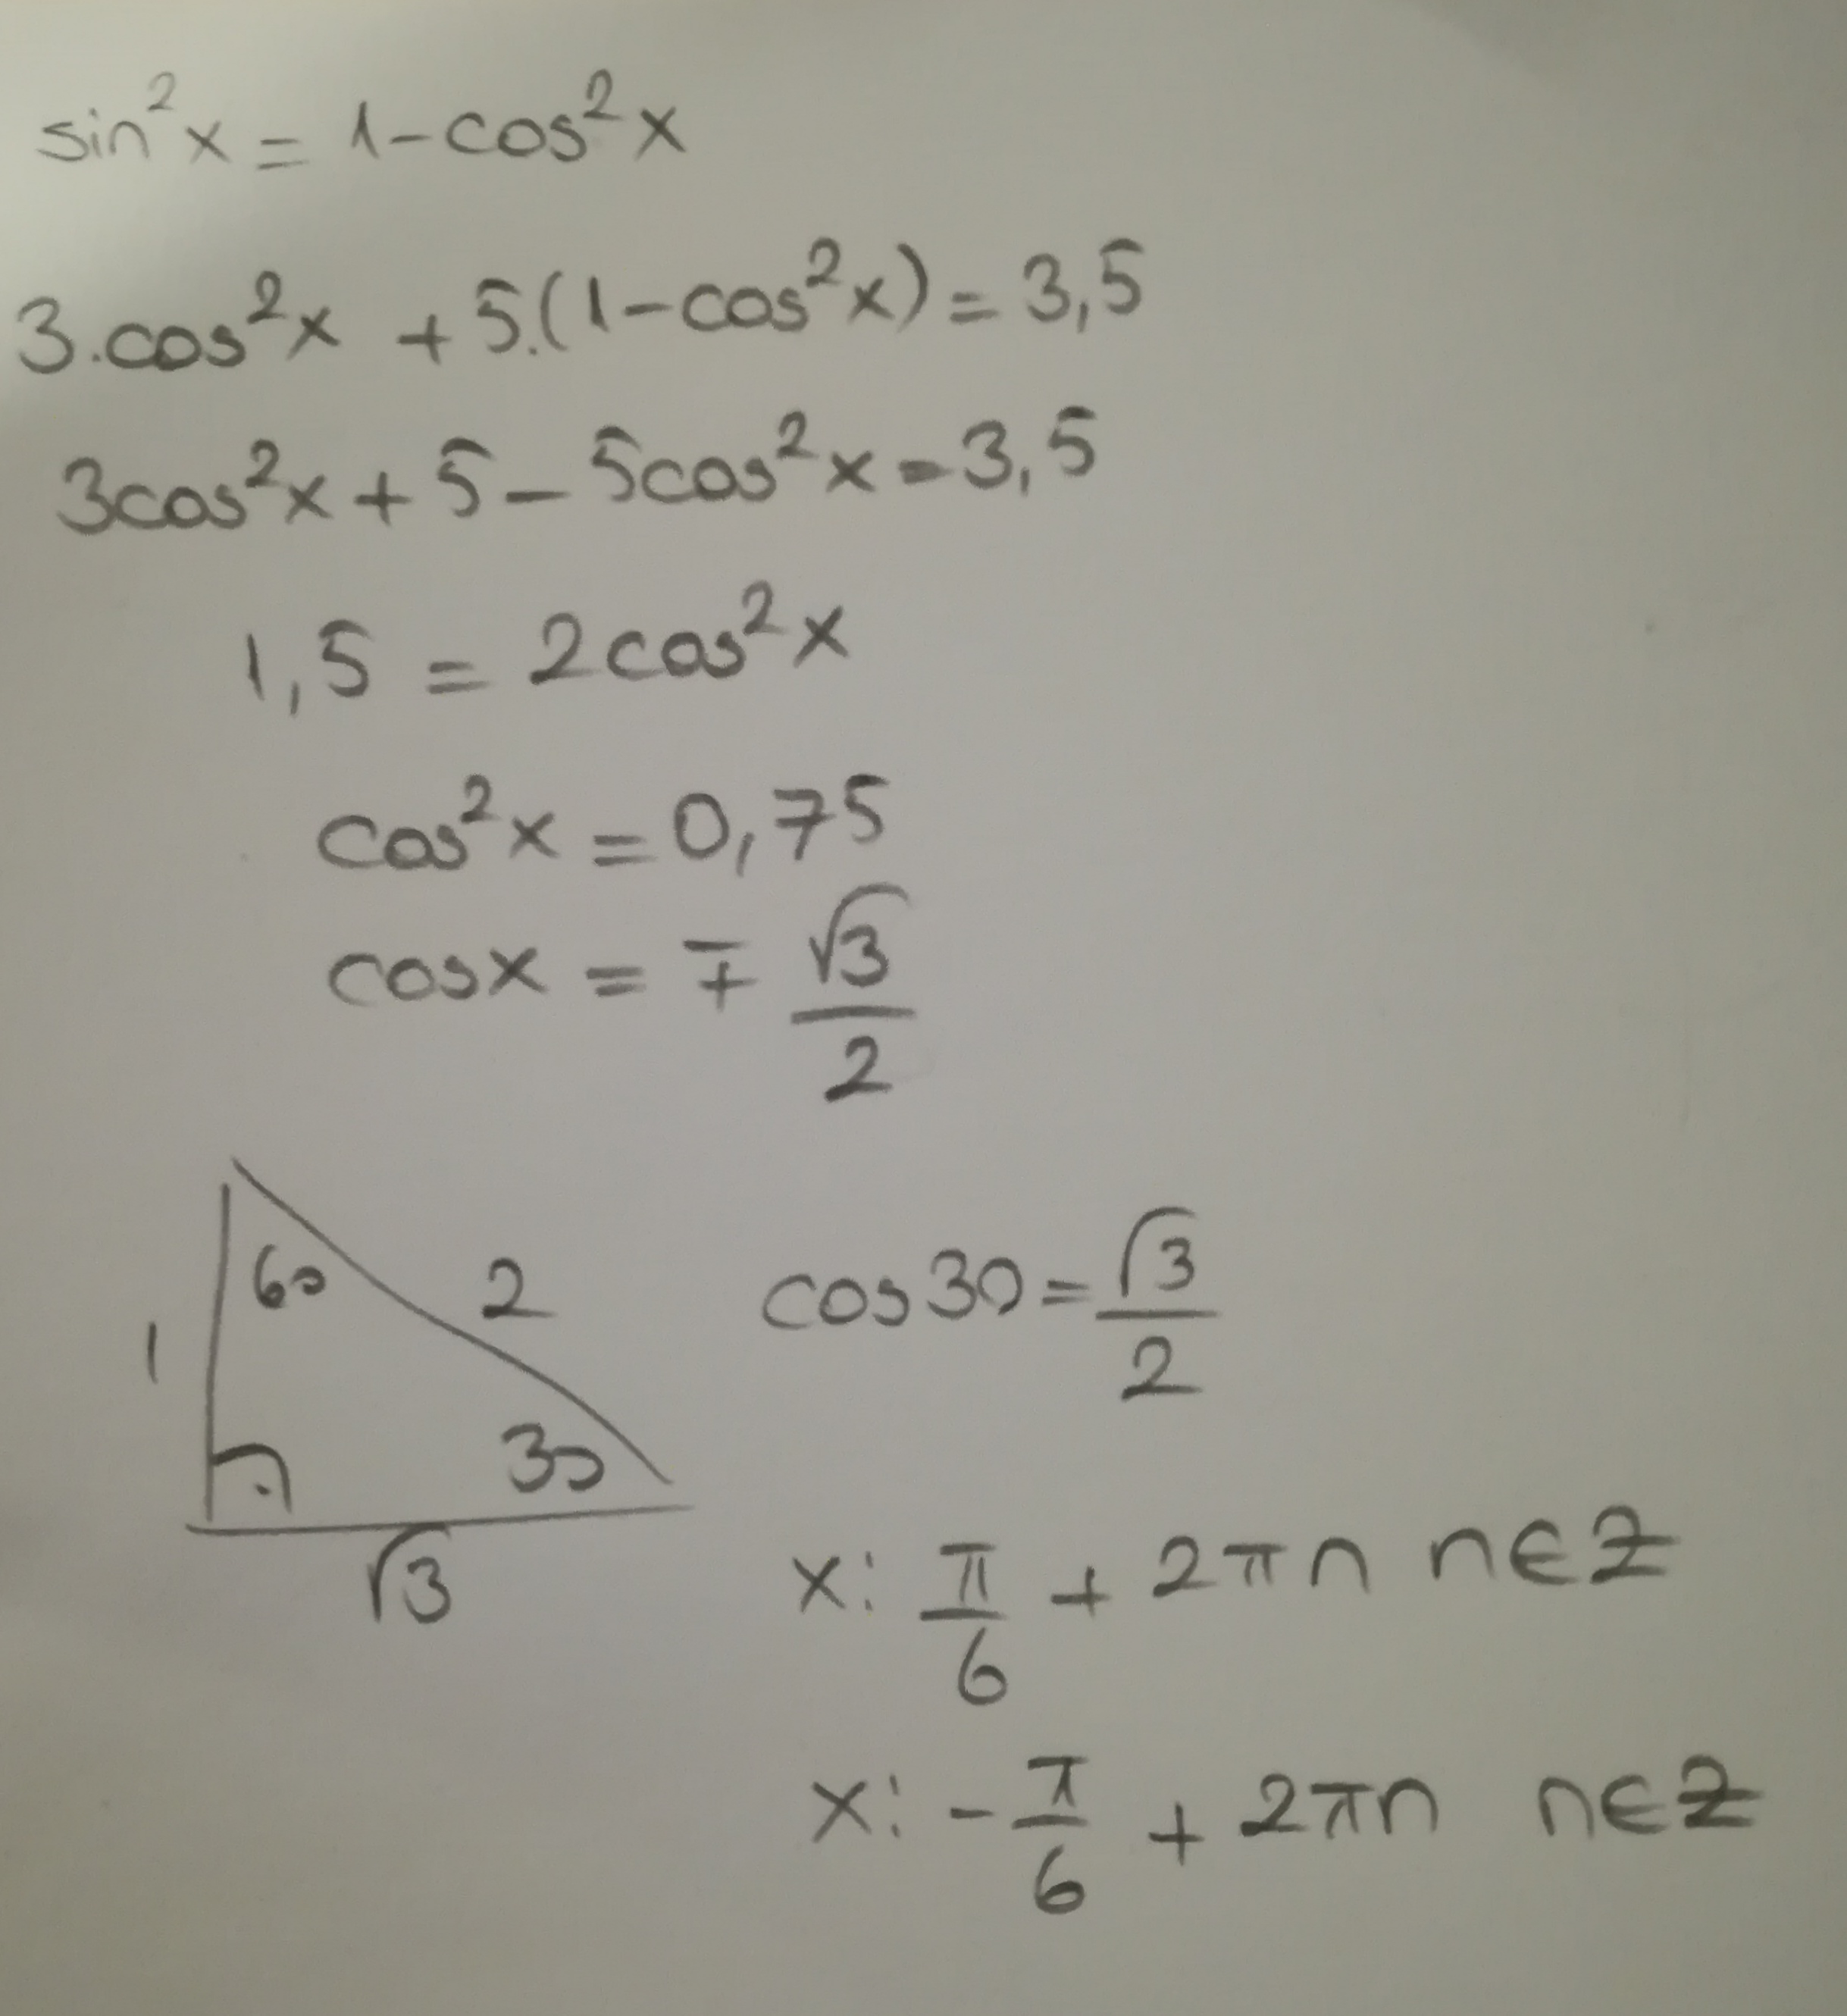 sin²x = 1-cos²x
3.cos²x + 5.(1-cos²x) = 3,5
3cos²x + 5 - 5cos²x = 3,5
1,5 = 2cos²x
cos²x = 0,75
cosx = ∓ √3/2
60
2
1
30
√3
cos30 = √3/2
x: π/6 + 2πn n∈Z
x: -π/6 + 2πn n∈Z